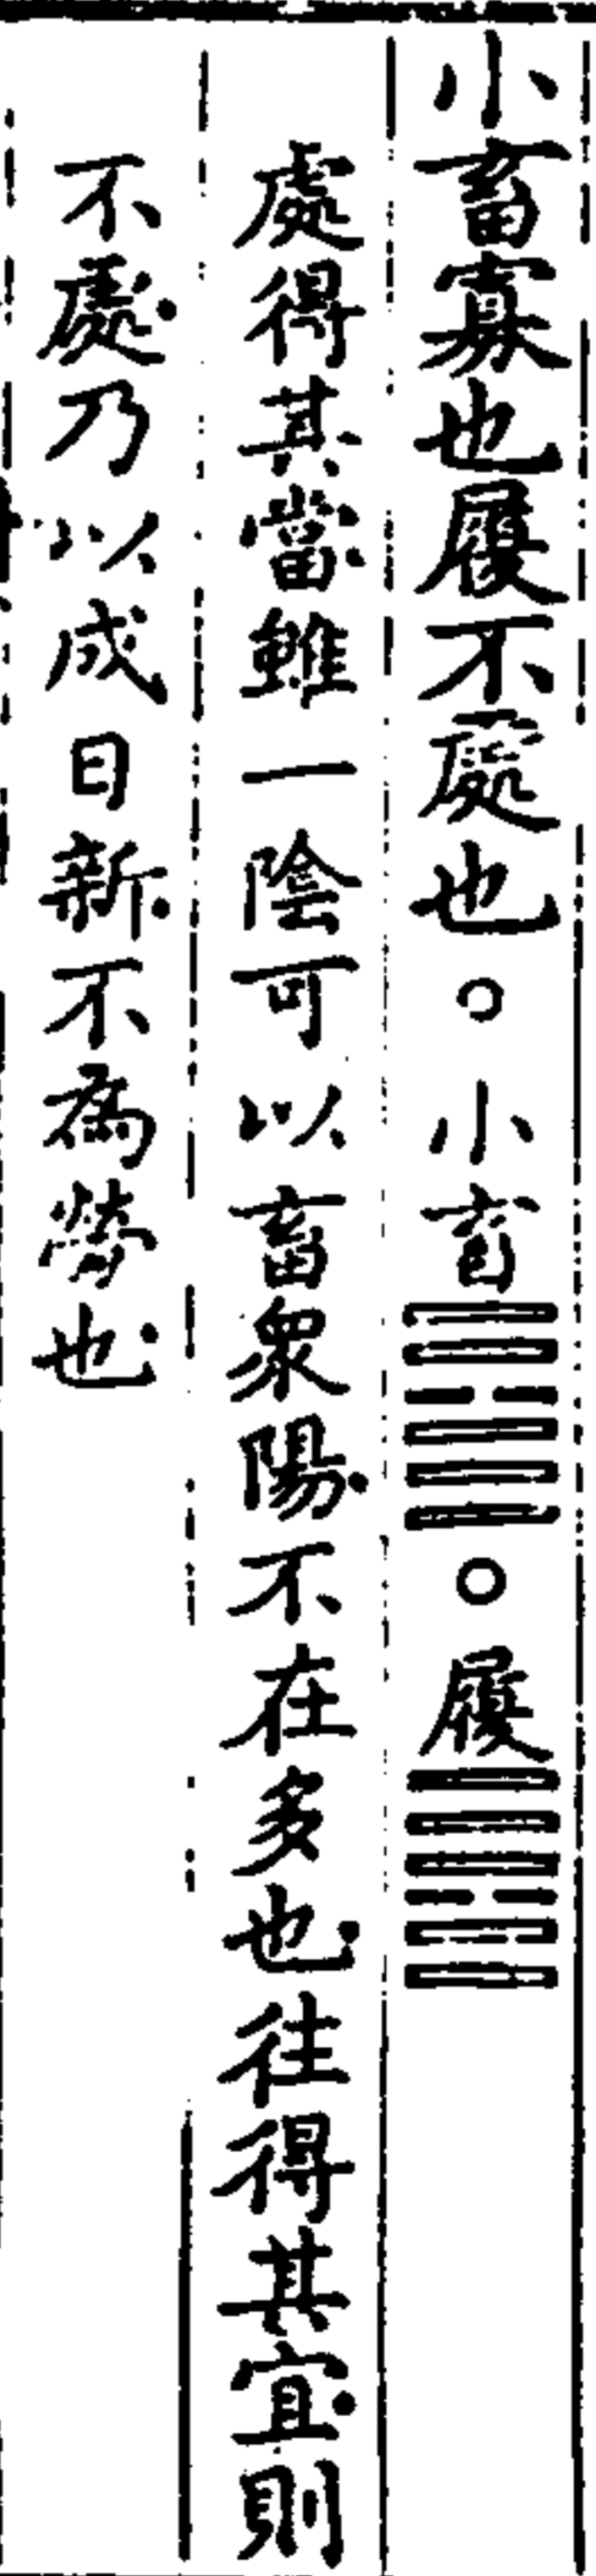 小畜寡也履不處也○小畜䷈○履䷉
處得其當雖一陰可以畜衆陽不在多也往得其宜則
不處乃以成日新不為勞也